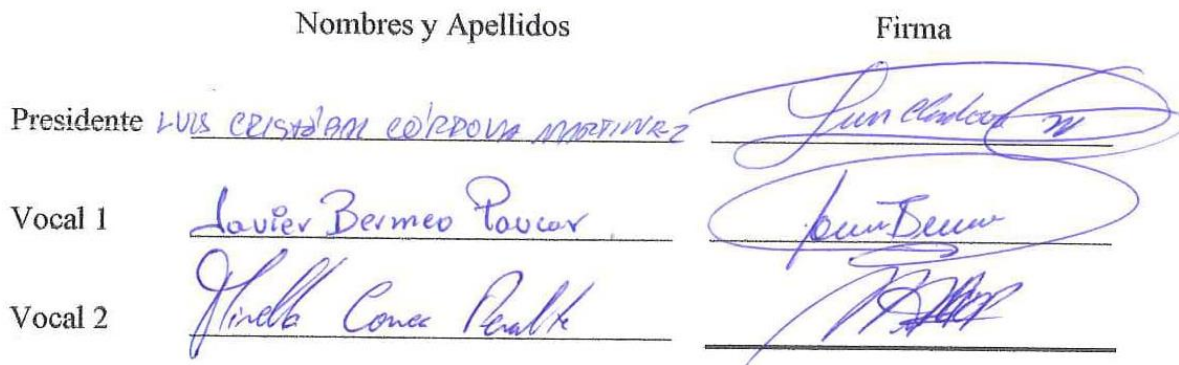 Nombres y Apellidos Firma
Presidente LUIS CRISTÓBAL CÓRDOVA MARTINEZ
Vocal 1 Javier Bermeo Paucar
Vocal 2 Peralta